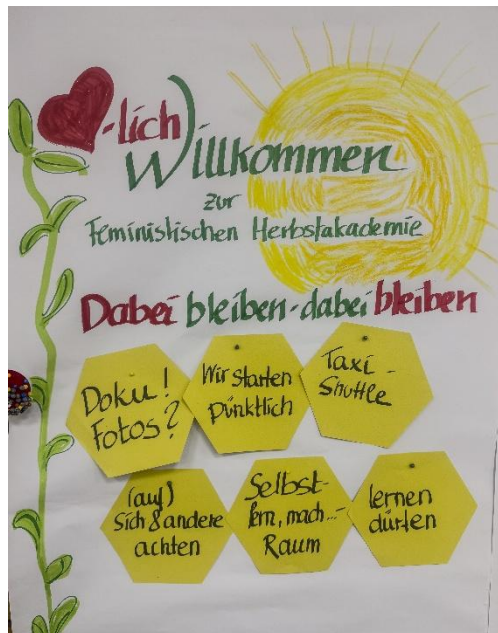 -lich)
Willkommen
zur
Feministischen Herbstakademie
Dabei bleiben - dabei bleiben
Doku!
Fotos?
Wir starten
pünktlich
Taxi-
Shuttle
(auf)
Sich & andere
achten
Selbst-
lern, mach...-
Raum
lernen
dürfen